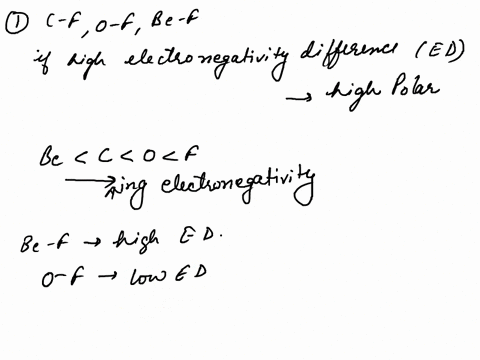 ① C-F, O-F, Be-F
if high electronegativity difference (ED)
→ high Polar
Be < C < O < F
↑ing electronegativity
Be-F → high ED.
O-F → low ED